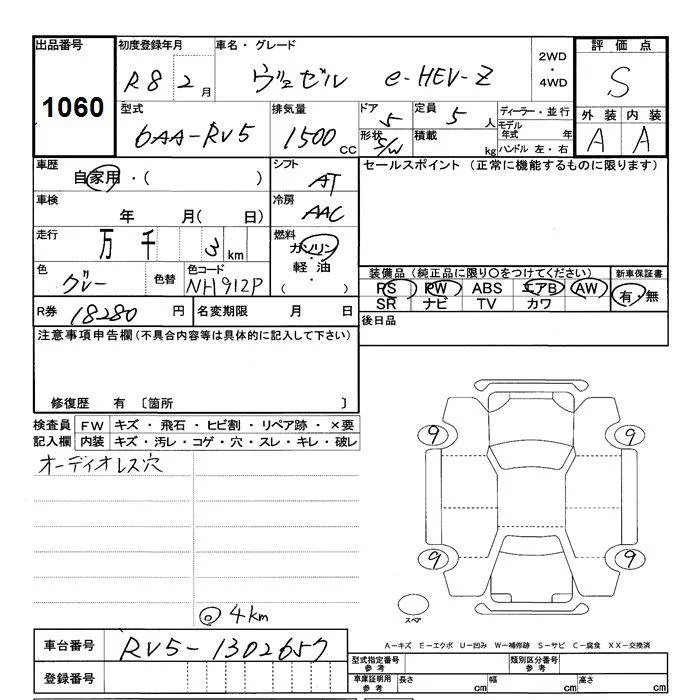 出品番号 初度登録年月 車名・グレード 2WD ・ 4WD 評価点
1060 R8 2月 ヴェゼル e-HEV-Z S
型式 排気量 ドア 定員 ディーラー・並行 外装 内装
6AA-RV5 1500cc 5 5人 モデル年式 年 A A
形状 S/W 積載 kg ハンドル 左・右
車歴 自家用・( ) シフト AT セールスポイント (正常に機能するものに限ります)
車検 年 月( 日) 冷房 AAC
走行 万 千 3 km 燃料 ガソリン・軽油・( )
色 グレー 色替 色コード NH912P
装備品(純正品に限り○をつけてください) 新車保証書
RS PW ABS エアB AW 有・無
SR ナビ TV カワ
R券 18280円 名変期限 月 日 後日品
注意事項申告欄(不具合内容等は具体的に記入して下さい)
修復歴 有 〔箇所 〕
検査員記入欄 FW キズ・飛石・ヒビ割・リペア跡・×要
内装 キズ・汚レ・コゲ・穴・スレ・キレ・破レ
オーディオレス穴
9 9
9 9
◎4km
スペア
A-キズ E-エクボ U-凹み W-補修跡 S-サビ C-腐食 XX-交換済
車台番号 RV5-1302657
型式指定番号 参考 類別区分番号 参考
登録番号
車庫証明用 参考 長さ cm 幅 cm 高さ cm